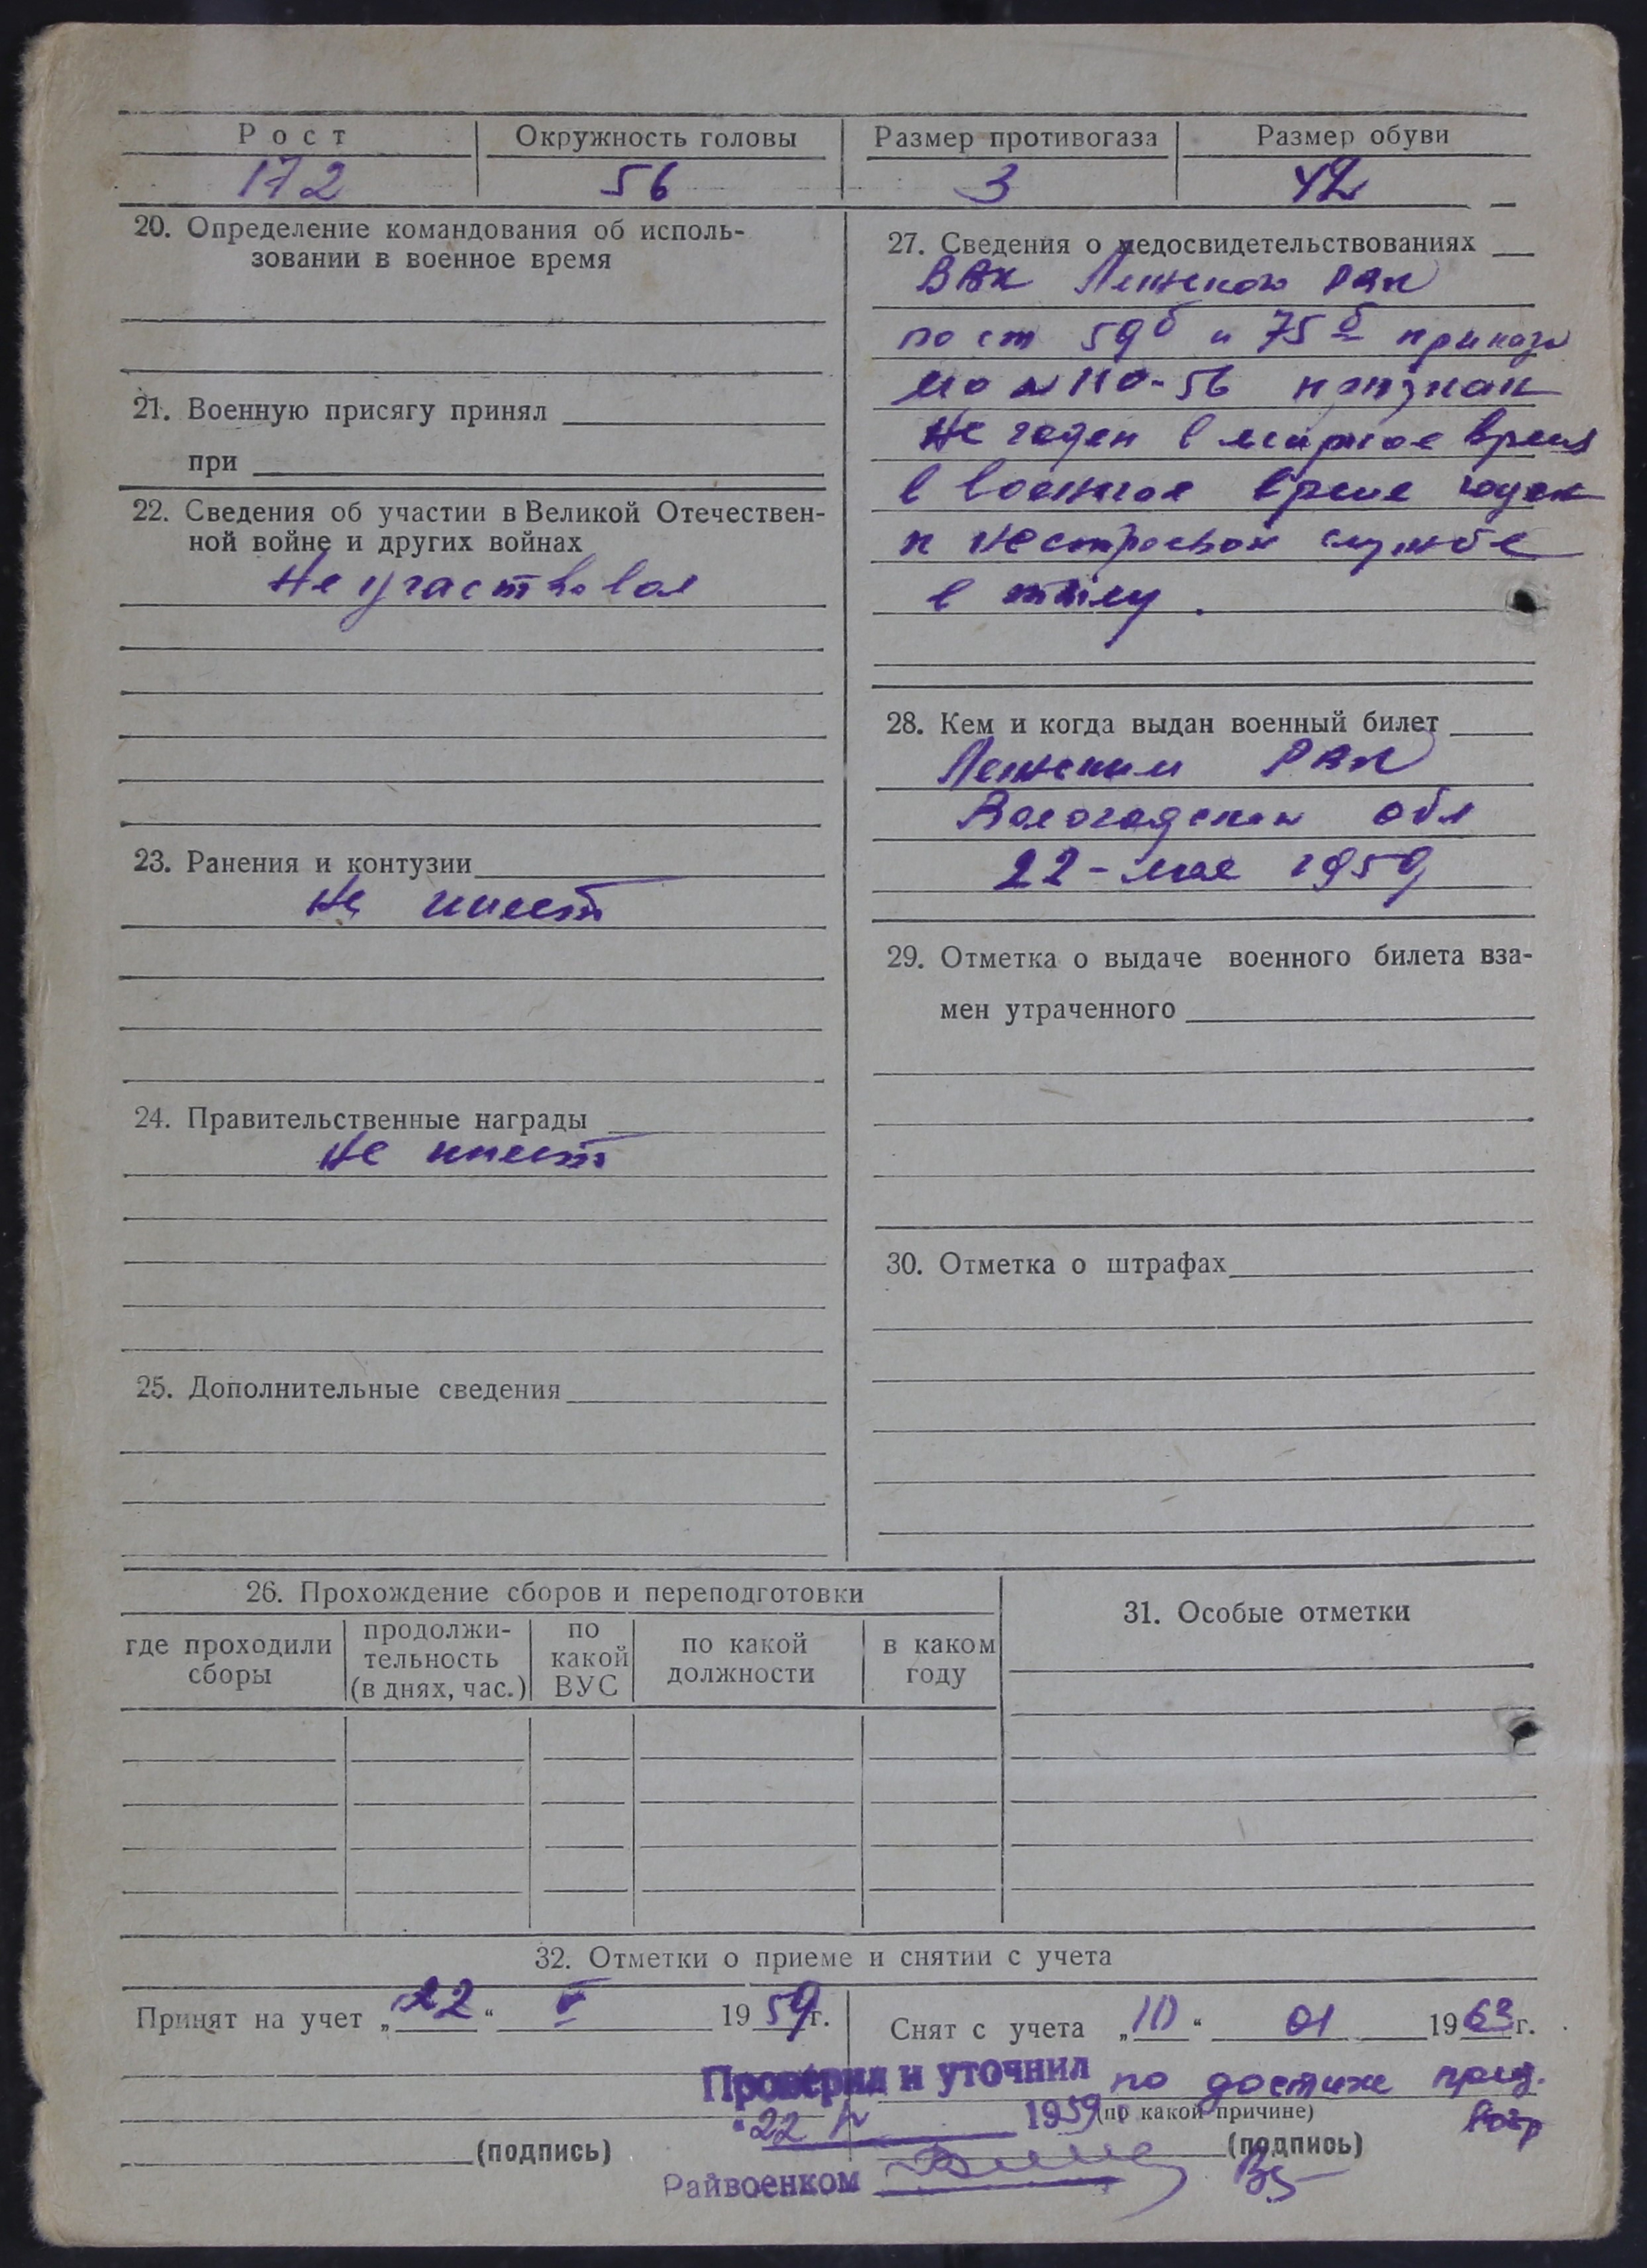 Рост Окружность головы Размер противогаза Размер обуви
172 56 3 42
20. Определение командования об исполь-
зовании в военное время
21. Военную присягу принял
при
22. Сведения об участии в Великой Отечествен-
ной войне и других войнах
Не участвовал
23. Ранения и контузии
Не имеет
24. Правительственные награды
Не имеет
25. Дополнительные сведения
27. Сведения о медосвидетельствованиях
ВВК Лежского РВК
по ст 59б и 75б приказа
МО № 110-56 признан
Не годен в мирное время
в военное время годен
к нестроевой службе
в тылу.
28. Кем и когда выдан военный билет
Лежским РВК
Вологодской обл
22 - мая 1959
29. Отметка о выдаче военного билета вза-
мен утраченного
30. Отметка о штрафах
26. Прохождение сборов и переподготовки
где проходили
сборы
продолжи-
тельность
(в днях, час.)
по
какой
ВУС
по какой
должности
в каком
году
31. Особые отметки
32. Отметки о приеме и снятии с учета
Принят на учет „22“ V 1959г.
Снят с учета „10“ 01 1963г.
Проверил и уточнил
по достиж пред.
возр
"22 V 1959
(по какой причине)
(подпись)
(подпись)
Райвоенком